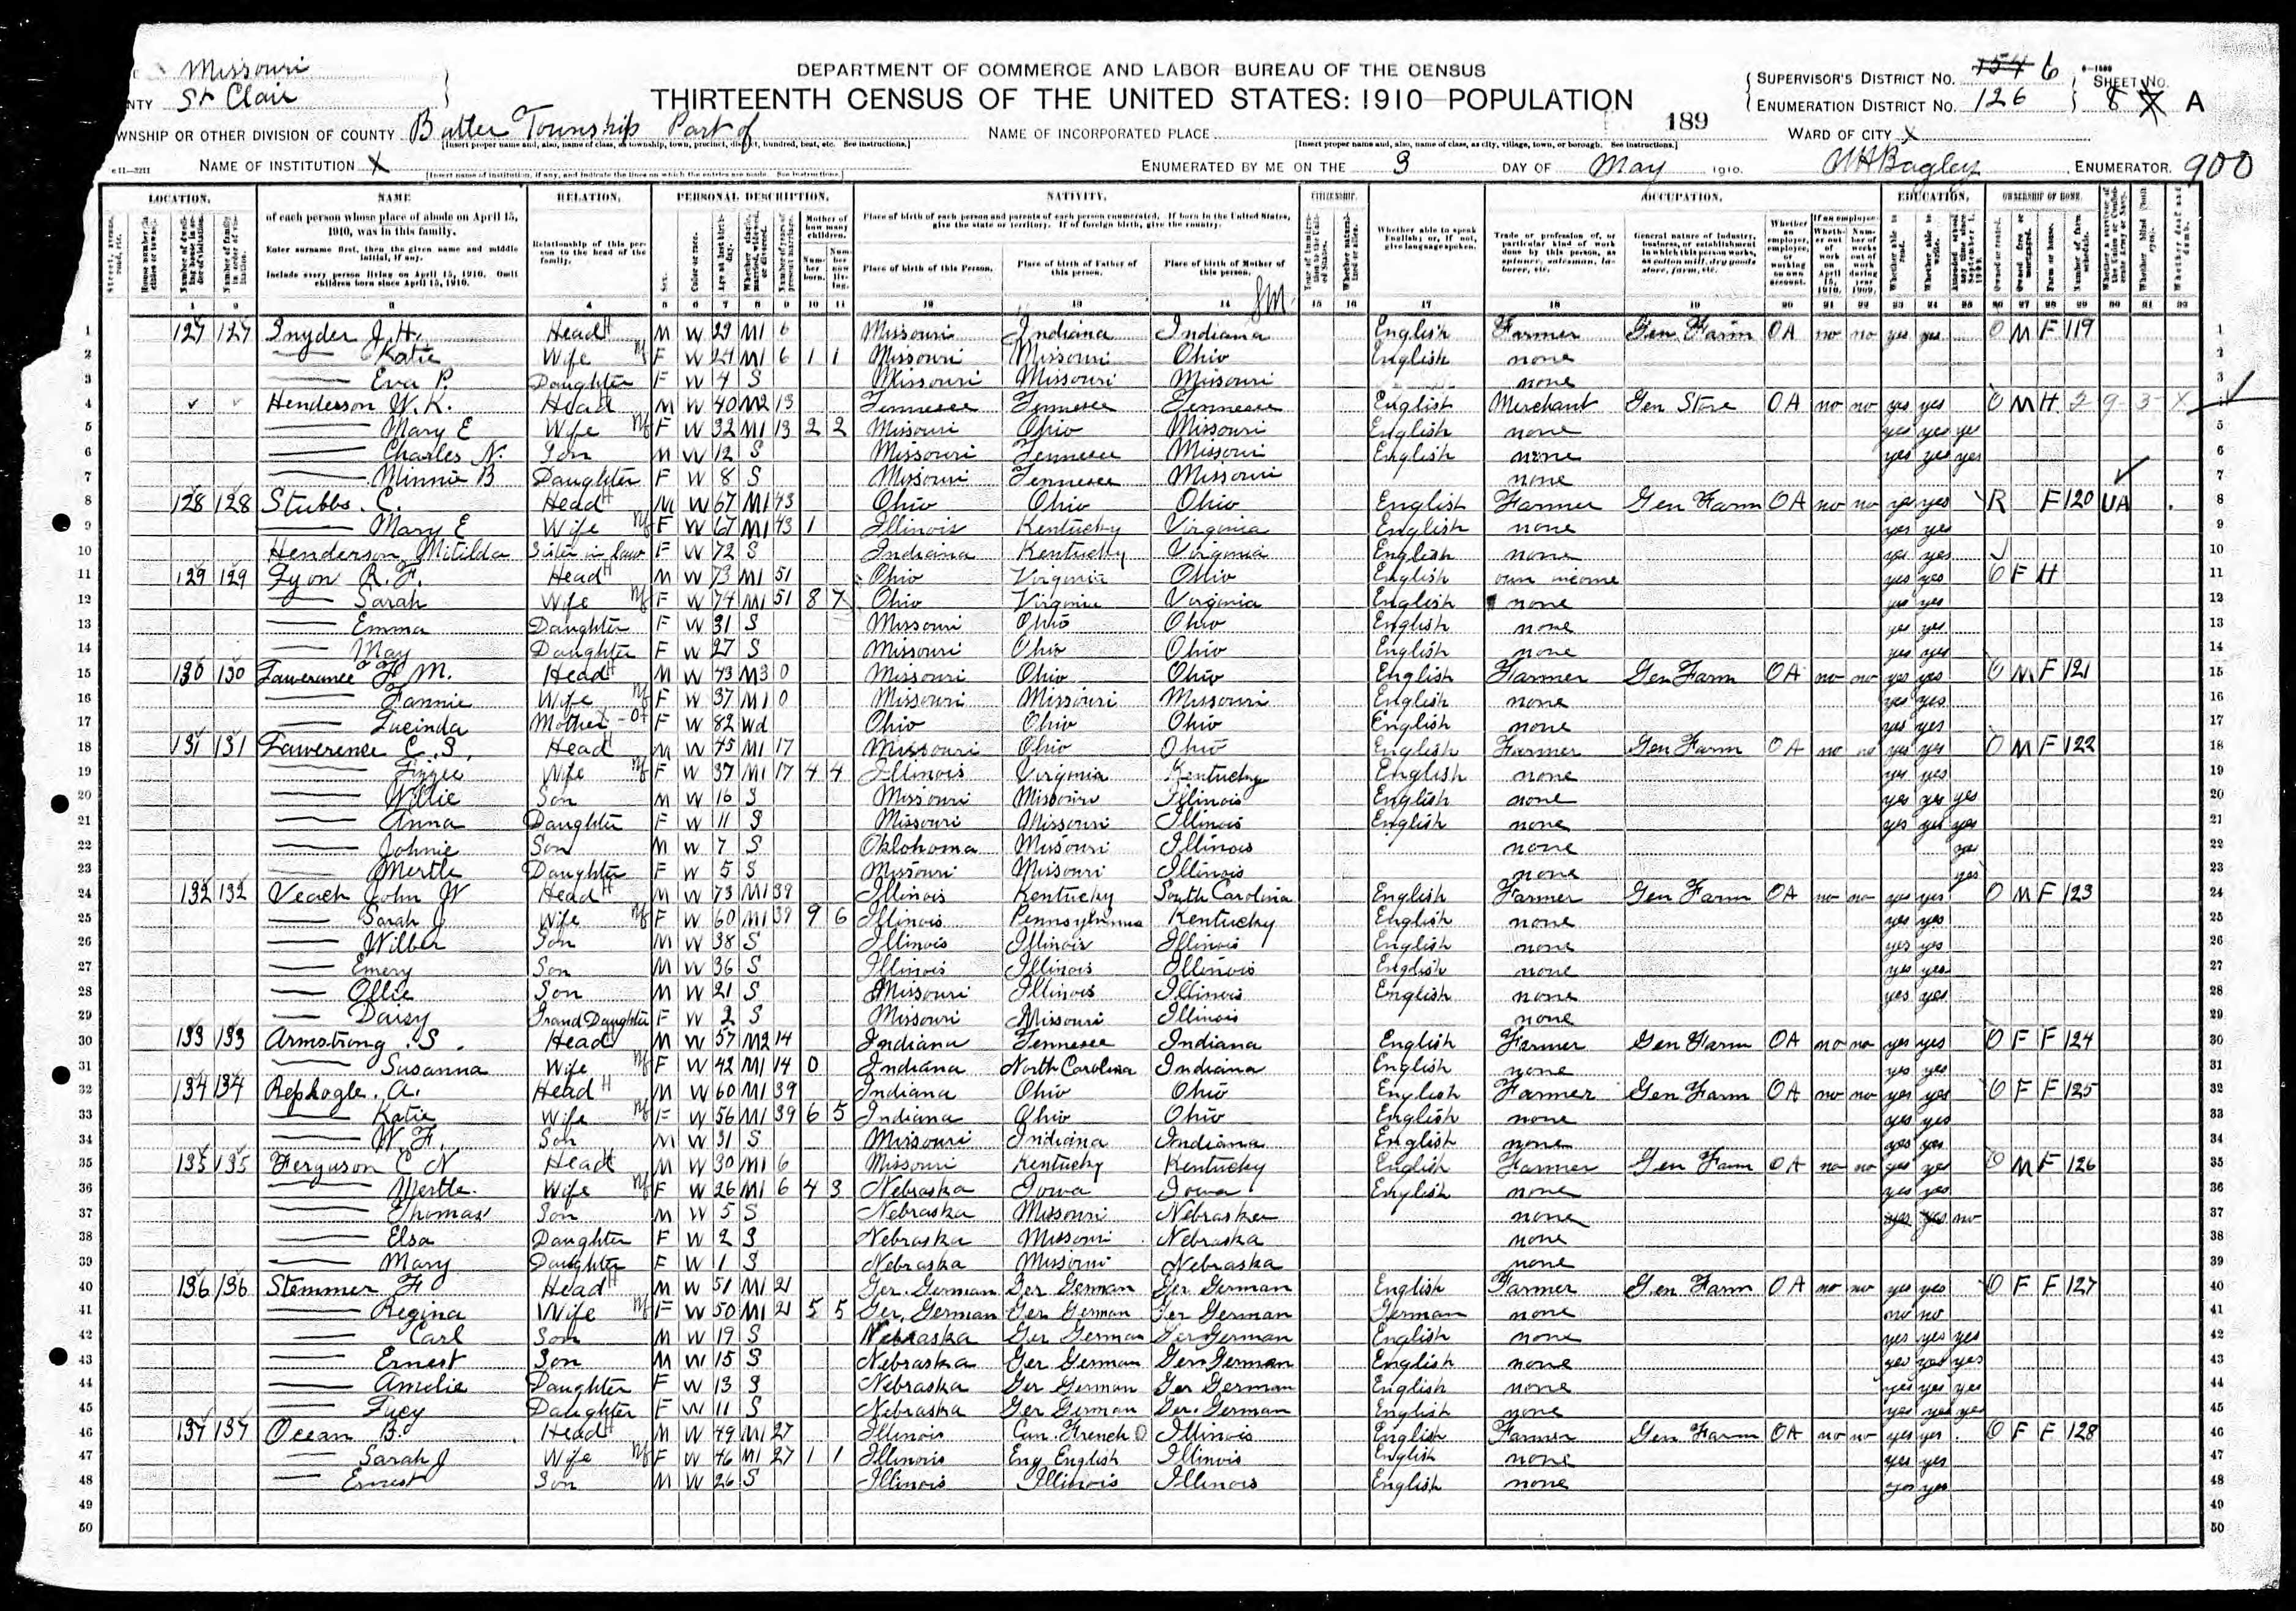 Missouri
NTY St Clair
DEPARTMENT OF COMMERCE AND LABOR—BUREAU OF THE CENSUS
THIRTEENTH CENSUS OF THE UNITED STATES: 1910—POPULATION
SUPERVISOR'S DISTRICT No. 154 6
ENUMERATION DISTRICT No. 126
SHEET No. 8 A
WNSHIP OR OTHER DIVISION OF COUNTY Butler Township Part of
NAME OF INCORPORATED PLACE
189
WARD OF CITY X
NAME OF INSTITUTION X
ENUMERATED BY ME ON THE 3 DAY OF May 1910.
Bagley ENUMERATOR. 900
LOCATION. NAME RELATION. PERSONAL DESCRIPTION. NATIVITY. CITIZENSHIP. OCCUPATION. EDUCATION. OWNERSHIP OF HOME.
of each person whose place of abode on April 15, 1910, was in this family.
Enter surname first, then the given name and middle initial, if any.
Include every person living on April 15, 1910. Omit children born since April 15, 1910.
Relationship of this person to the head of the family.
Place of birth of each person and parents of each person enumerated. If born in the United States, give the state or territory. If of foreign birth, give the country.
Place of birth of this Person. Place of birth of Father of this person. Place of birth of Mother of this person.
Whether able to speak English; or, if not, give language spoken.
1 127 127 Snyder J. H. Head M W 29 M1 6 Missouri Indiana Indiana English Farmer Gen Farm OA no no yes yes O M F 119
2 Katie Wife F W 24 M1 6 1 1 Missouri Missouri Ohio English none
3 Eva P. Daughter F W 4 S Missouri Missouri Missouri none
4 Henderson W. K. Head M W 40 M2 13 Tennessee Tennessee Tennessee English Merchant Gen Store OA no no yes yes O M H
5 Mary E Wife F W 32 M1 13 2 2 Missouri Ohio Missouri English none yes yes yes
6 Charles N. Son M W 12 S Missouri Tennessee Missouri English none yes yes yes
7 Minnie B Daughter F W 8 S Missouri Tennessee Missouri none
8 128 128 Stubbs. C. Head M W 67 M1 43 Ohio Ohio Ohio English Farmer Gen Farm OA no no yes yes R F 120 UA
9 Mary E Wife F W 67 M1 43 1 Illinois Kentucky Virginia English none yes yes
10 Henderson Mitilda Sister in law F W 72 S Indiana Kentucky Virginia English none yes yes
11 129 129 Lyon R. F. Head M W 73 M1 51 Ohio Virginia Ohio English own income yes yes O F H
12 Sarah Wife F W 74 M1 51 8 7 Ohio Virginia Virginia English none yes yes
13 Emma Daughter F W 31 S Missouri Ohio Ohio English none yes yes
14 May Daughter F W 27 S Missouri Ohio Ohio English none yes yes
15 130 130 Lawerance F. M. Head M W 43 M3 0 Missouri Ohio Ohio English Farmer Gen Farm OA no no yes yes O M F 121
16 Fannie Wife F W 37 M1 0 Missouri Missouri Missouri English none yes yes
17 Lucinda Mother F W 82 Wd Ohio Ohio Ohio English none yes yes
18 131 131 Lawerence C. S. Head M W 45 M1 17 Missouri Ohio Ohio English Farmer Gen Farm OA no no yes yes O M F 122
19 Lizzie Wife F W 37 M1 17 4 4 Illinois Virginia Kentucky English none yes yes
20 Willie Son M W 16 S Missouri Missouri Illinois English none yes yes yes
21 Anna Daughter F W 11 S Missouri Missouri Illinois English none yes yes yes
22 Johnie Son M W 7 S Oklohoma Missouri Illinois none yes
23 Mertle Daughter F W 5 S Missouri Missouri Illinois none yes
24 132 132 Veach John W Head M W 73 M1 39 Illinois Kentucky South Carolina English Farmer Gen Farm OA no no yes yes O M F 123
25 Sarah J Wife F W 60 M1 39 9 6 Illinois Pennsylvania Kentucky English none yes yes
26 Wilber Son M W 38 S Illinois Illinois Illinois English none yes yes
27 Emery Son M W 36 S Illinois Illinois Illinois English none yes yes
28 Ollie Son M W 21 S Missouri Illinois Illinois English none yes yes
29 Daisy Grand Daughter F W 2 S Missouri Missouri Illinois none
30 133 133 Armstrong. S. Head M W 57 M2 14 Indiana Tennessee Indiana English Farmer Gen Farm OA no no yes yes O F F 124
31 Susanna Wife F W 42 M1 14 0 Indiana North Carolina Indiana English none yes yes
32 134 134 Rephogle. A. Head M W 60 M1 39 Indiana Ohio Ohio English Farmer Gen Farm OA no no yes yes O F F 125
33 Katie Wife F W 56 M1 39 6 5 Indiana Ohio Ohio English none yes yes
34 W. F. Son M W 31 S Missouri Indiana Indiana English none yes yes
35 135 135 Ferguson C N Head M W 30 M1 6 Missouri Kentucky Kentucky English Farmer Gen Farm OA no no yes yes O M F 126
36 Mertle. Wife F W 26 M1 6 4 3 Nebraska Iowa Iowa English none yes yes
37 Thomas Son M W 5 S Nebraska Missouri Nebraska none yes yes no
38 Elsa Daughter F W 2 S Nebraska Missouri Nebraska none
39 Mary Daughter F W 1 S Nebraska Missouri Nebraska none
40 136 136 Stemmer F Head M W 51 M1 21 Ger. German Ger German Ger German English Farmer Gen Farm OA no no yes yes O F F 127
41 Regina Wife F W 50 M1 21 5 5 Ger. German Ger German Ger German German none no no
42 Carl Son M W 19 S Nebraska Ger German Ger German English none yes yes yes
43 Ernest Son M W 15 S Nebraska Ger German Ger German English none yes yes yes
44 Amelie Daughter F W 13 S Nebraska Ger German Ger German English none yes yes yes
45 Lucy Daughter F W 11 S Nebraska Ger German Ger. German English none yes yes yes
46 137 137 Ocean B. Head M W 49 M1 27 Illinois Can. French Illinois English Farmer Gen Farm OA no no yes yes O F F 128
47 Sarah J Wife F W 46 M1 27 1 1 Illinois Eng English Illinois English none yes yes
48 Ernest Son M W 26 S Illinois Illinois Illinois English none yes yes
49
50